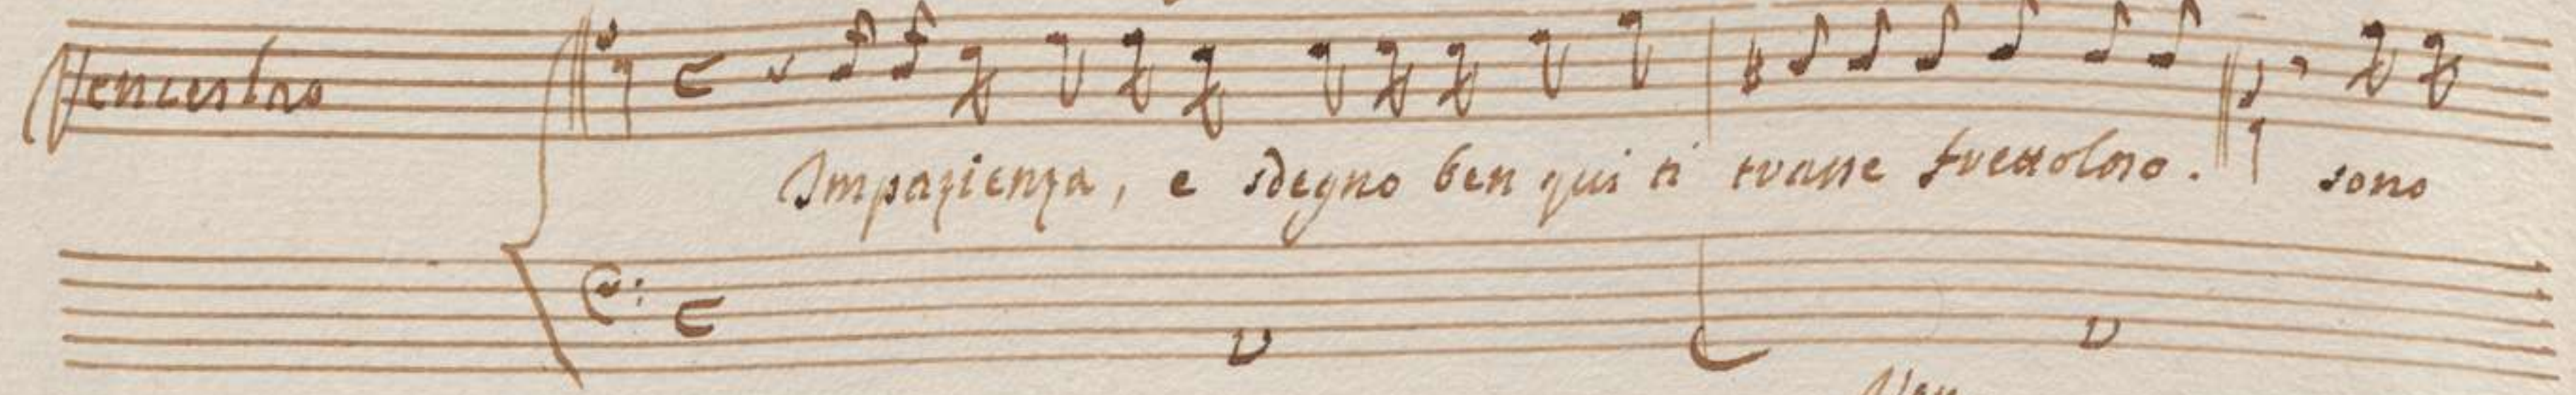 Venceslao
Impazienza, e sdegno ben qui ti trasse frettoloso. sono
Ven